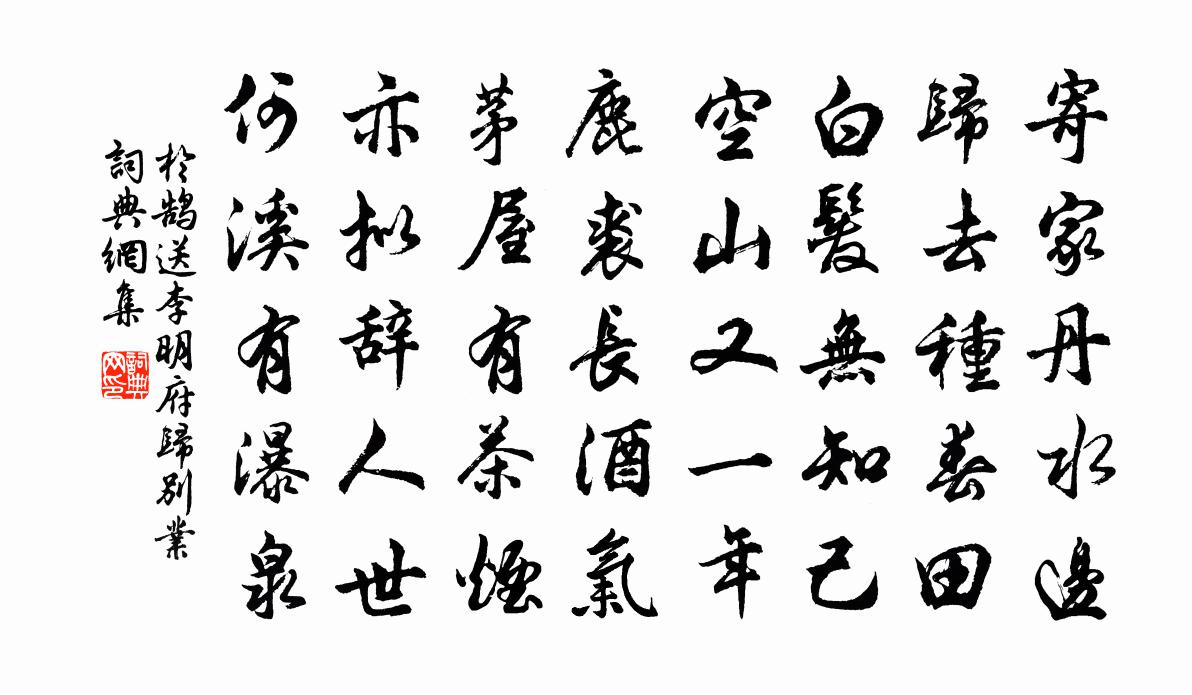 寄家丹水邊
歸去種春田
白髮無知己
空山又一年
鹿裘長酒氣
茅屋有茶煙
亦拟辞人世
何溪有瀑泉
於鵠送李明府歸別業
詞典網集
詞典网印